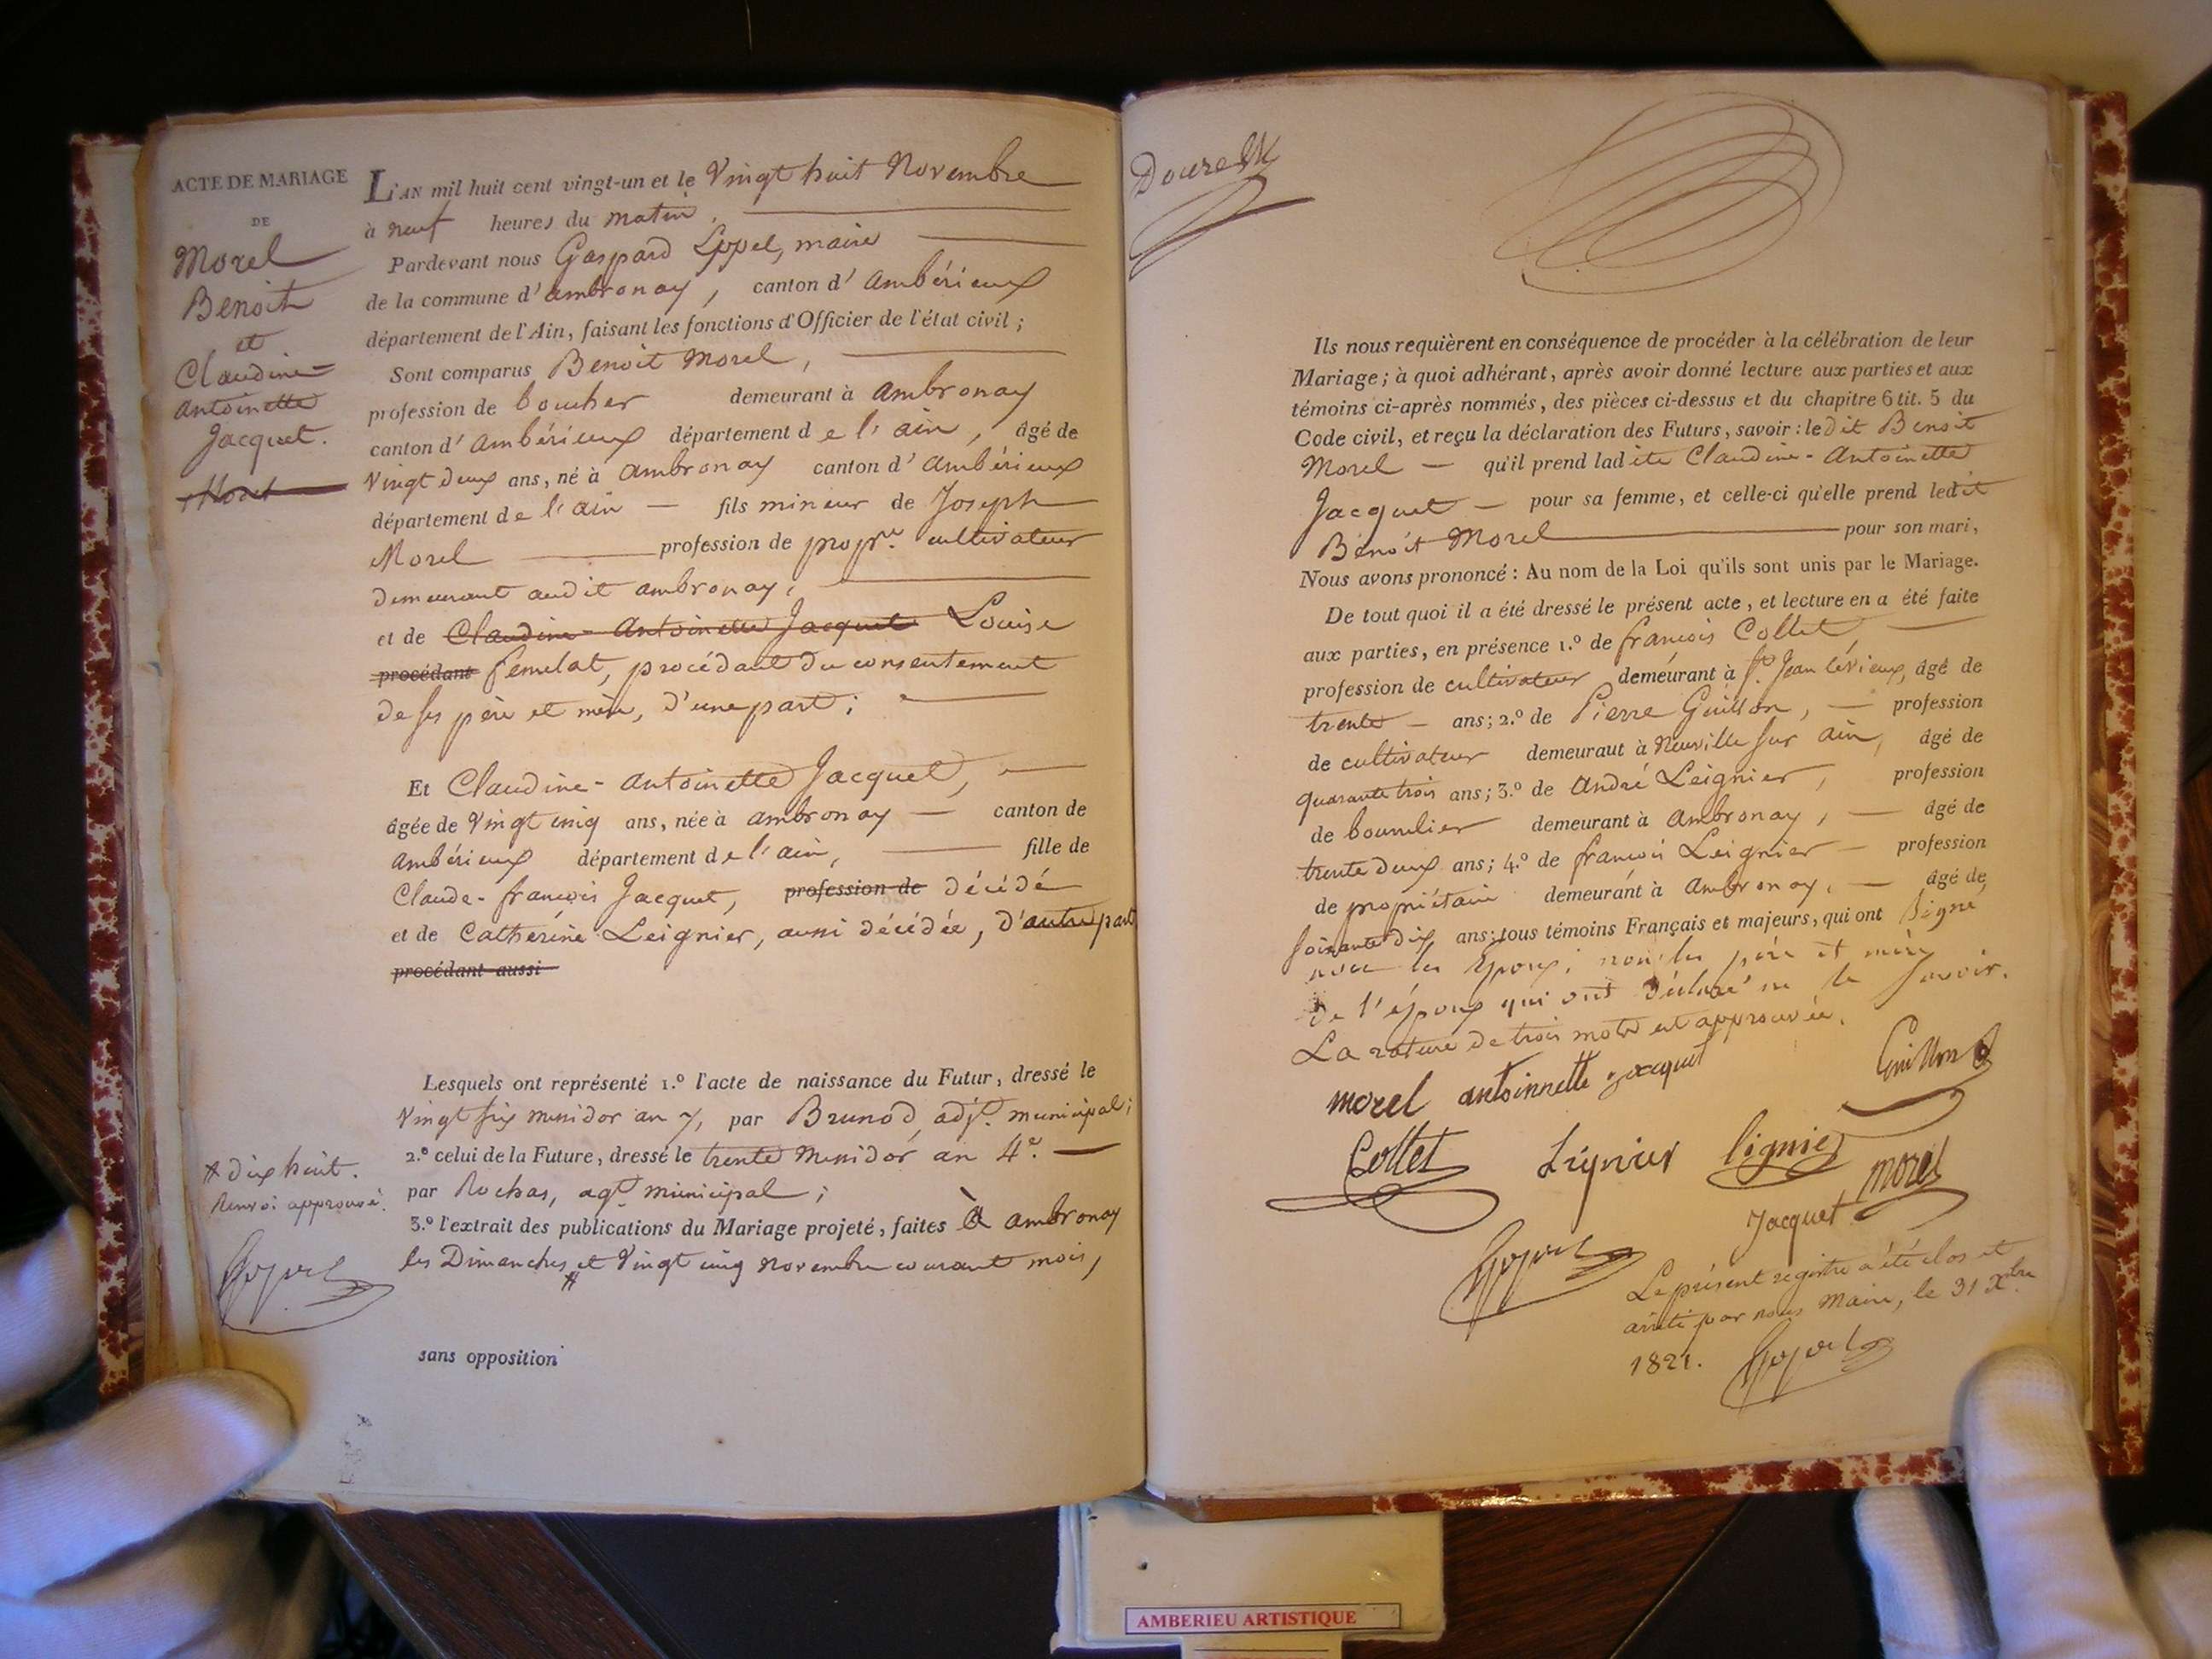 ACTE DE MARIAGE
DE
Morel
Benoit
et
Claudine-
Antoinette
Jacquet.
Morel
L'AN mil huit cent vingt-un et le Vingt huit Novembre
à neuf heures du matin,
Pardevant nous Gaspard Eppel, maire
de la commune d'ambronay, canton d'Ambérieux
département de l'Ain, faisant les fonctions d'Officier de l'état civil;
Sont comparus Benoit Morel,
profession de boucher demeurant à Ambronay
canton d'Ambérieux département de l'ain, âgé de
Vingt deux ans, né à Ambronay canton d'Ambérieux
département de l'ain — fils mineur de Joseph
Morel profession de propre. cultivateur
demeurant audit ambronay,
et de Claudine-Antoinette Jacquet Louise
procédant femelat, procédant du consentement
de ses père et mère, d'une part;
Et Claudine-Antoinette Jacquet,
âgée de Vingt cinq ans, née à ambronay — canton de
Ambérieux département de l'ain, fille de
Claude-françois Jacquet, profession de décédé
et de Catherine Leignier, aussi décédée, d'autre part
procédant aussi
Lesquels ont représenté 1.º l'acte de naissance du Futur, dressé le
Vingt six messidor an 7, par Brunod, adjt. municipal;
2.º celui de la Future, dressé le trente Messidor an 4e. —
par Rochas, agt. municipal;
3.º l'extrait des publications du Mariage projeté, faites à ambronay
les Dimanches # et Vingt cinq novembre courant mois,
# dix huit.
Renvoi approuvé.
sans opposition
Ils nous requièrent en conséquence de procéder à la célébration de leur
Mariage; à quoi adhérant, après avoir donné lecture aux parties et aux
témoins ci-après nommés, des pièces ci-dessus et du chapitre 6 tit. 5 du
Code civil, et reçu la déclaration des Futurs, savoir: le dit Benoit
Morel — qu'il prend ladite Claudine-Antoinette
Jacquet — pour sa femme, et celle-ci qu'elle prend ledit
Benoit Morel pour son mari,
Nous avons prononcé: Au nom de la Loi qu'ils sont unis par le Mariage.
De tout quoi il a été dressé le présent acte, et lecture en a été faite
aux parties, en présence 1.º de françois Collet,
profession de cultivateur demeurant à St. Jean levieux, âgé de
trente — ans; 2.º de Pierre Guillon, — profession
de cultivateur demeuraut à Neuville sur ain, âgé de
quarante trois ans; 3.º de André Leignier, profession
de bourrelier demeurant à Ambronay, — âgé de
trente deux ans; 4.º de françois Leignier — profession
de propriétaire demeurant à Ambronay, — âgé de
soixante dix ans; tous témoins Français et majeurs, qui ont signé
avec les époux; non les père et mère
de l'époux qui ont déclaré ne le savoir.
La rature de trois mots est approuvée.
morel antoinnette jacquet Guillon
Collet Lignier lignier morel
Jacquet
Le présent registre a été clos et
arrêté par nous Maire, le 31 Xbre.
1821.
AMBERIEU ARTISTIQUE